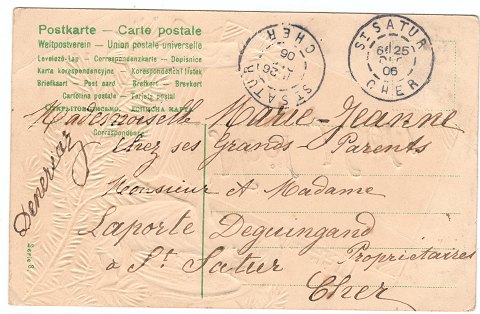 Postkarte - Carte postale
Weltpostverein - Union postale universelle
Levelező-Lap - Correspondenzkarte - Dopisnice
Karta korespondencyjna - Korespondenční lístek
Briefkaart - Post card - Brefkort - Brevkort
Cartolina postale - Tarjeta postal
Correspondenz
ST SATUR
26
06
CHER
ST SATUR
6 25
06
CHER
Mademoiselle Marie-Jeanne
Chez ses Grands-Parents
Monsieur A Madame
Laporte Deguingand
Propriétaires
à St Satur
Cher
Denervaz
Serie 8